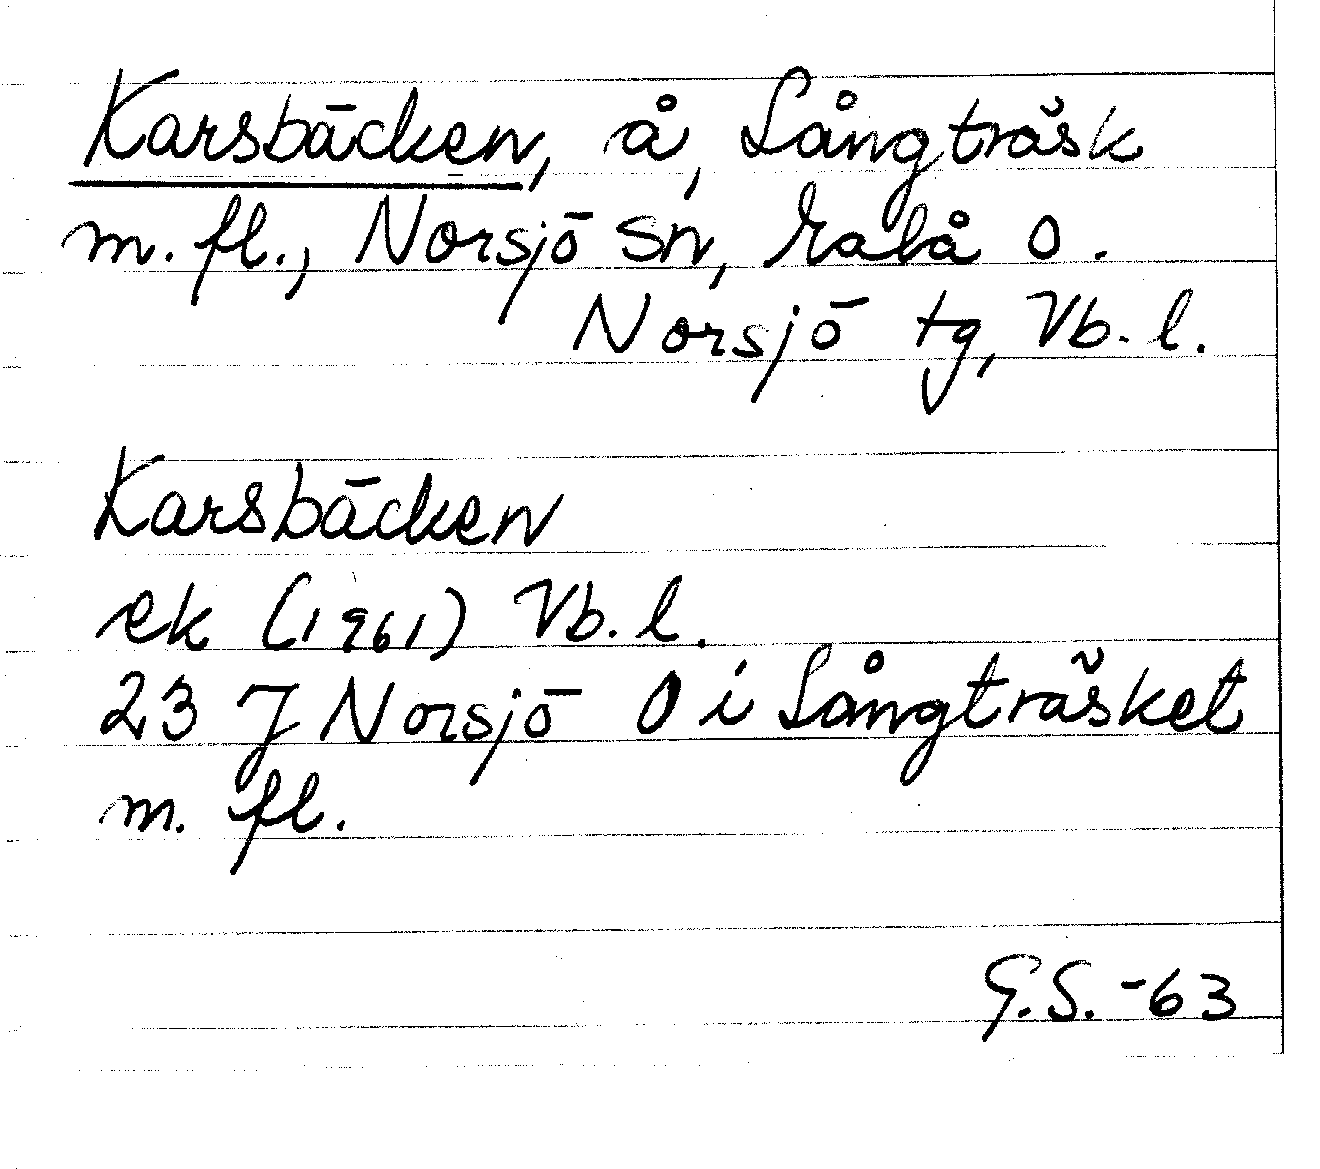 Karsbäcken, å, Långträsk
m. fl., Norsjö sn, Malå o.
Norsjö tg, Vb. l.
Karsbäcken
ek (1961) Vb. l.
23 J Norsjö O i Långträsket
m. fl.
G.S. -63